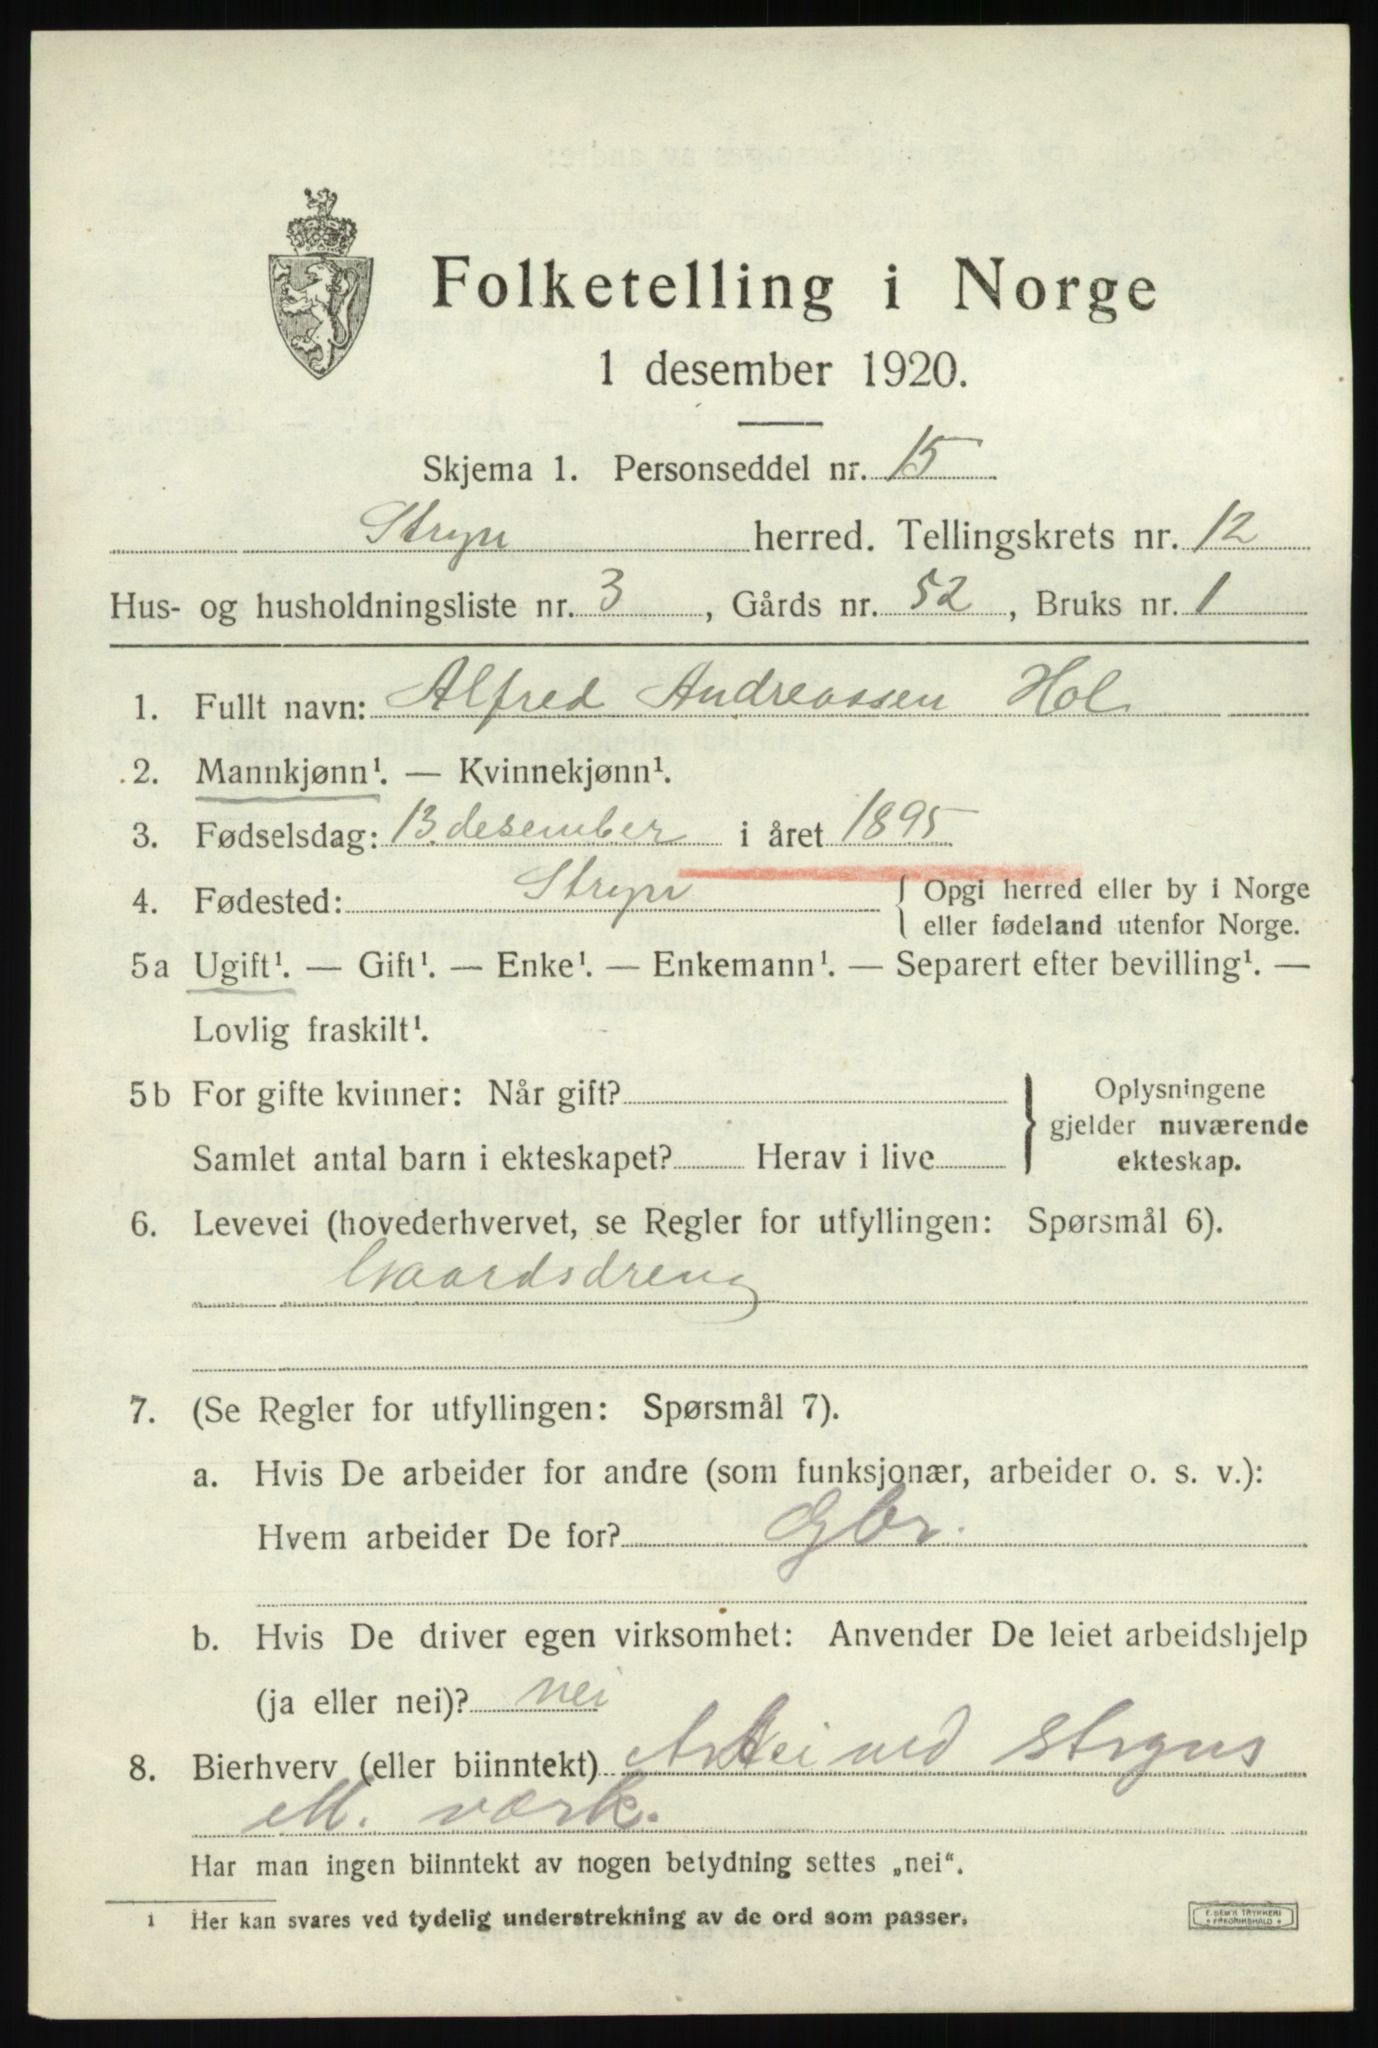 Folketelling i Norge
1 desember 1920.
Skjema 1. Personseddel nr. 15
Stryn herred. Tellingskrets nr. 12
Hus- og husholdningsliste nr. 3, Gårds nr. 52, Bruks nr. 1
1. Fullt navn: Alfred Andreassen Hol
2. Mannkjønn¹. — Kvinnekjønn¹.
3. Fødselsdag: 13. desember i året 1895
4. Fødested: Stryn { Opgi herred eller by i Norge
eller fødeland utenfor Norge.
5a Ugift¹. — Gift¹. — Enke¹. — Enkemann¹. — Separert efter bevilling¹. —
Lovlig fraskilt¹.
5b For gifte kvinner: Når gift? } Oplysningene
gjelder nuværende
Samlet antal barn i ekteskapet? Herav i live ekteskap.
6. Levevei (hovederhvervet, se Regler for utfyllingen: Spørsmål 6).
Gaardsdreng
7. (Se Regler for utfyllingen: Spørsmål 7).
a. Hvis De arbeider for andre (som funksjonær, arbeider o. s. v.):
Hvem arbeider De for? Gbr.
b. Hvis De driver egen virksomhet: Anvender De leiet arbeidshjelp
(ja eller nei)? nei
8. Bierhverv (eller biinntekt) ved Stryns
M. værk.
Har man ingen biinntekt av nogen betydning settes „nei“.
1 Her kan svares ved tydelig understrekning av de ord som passer.